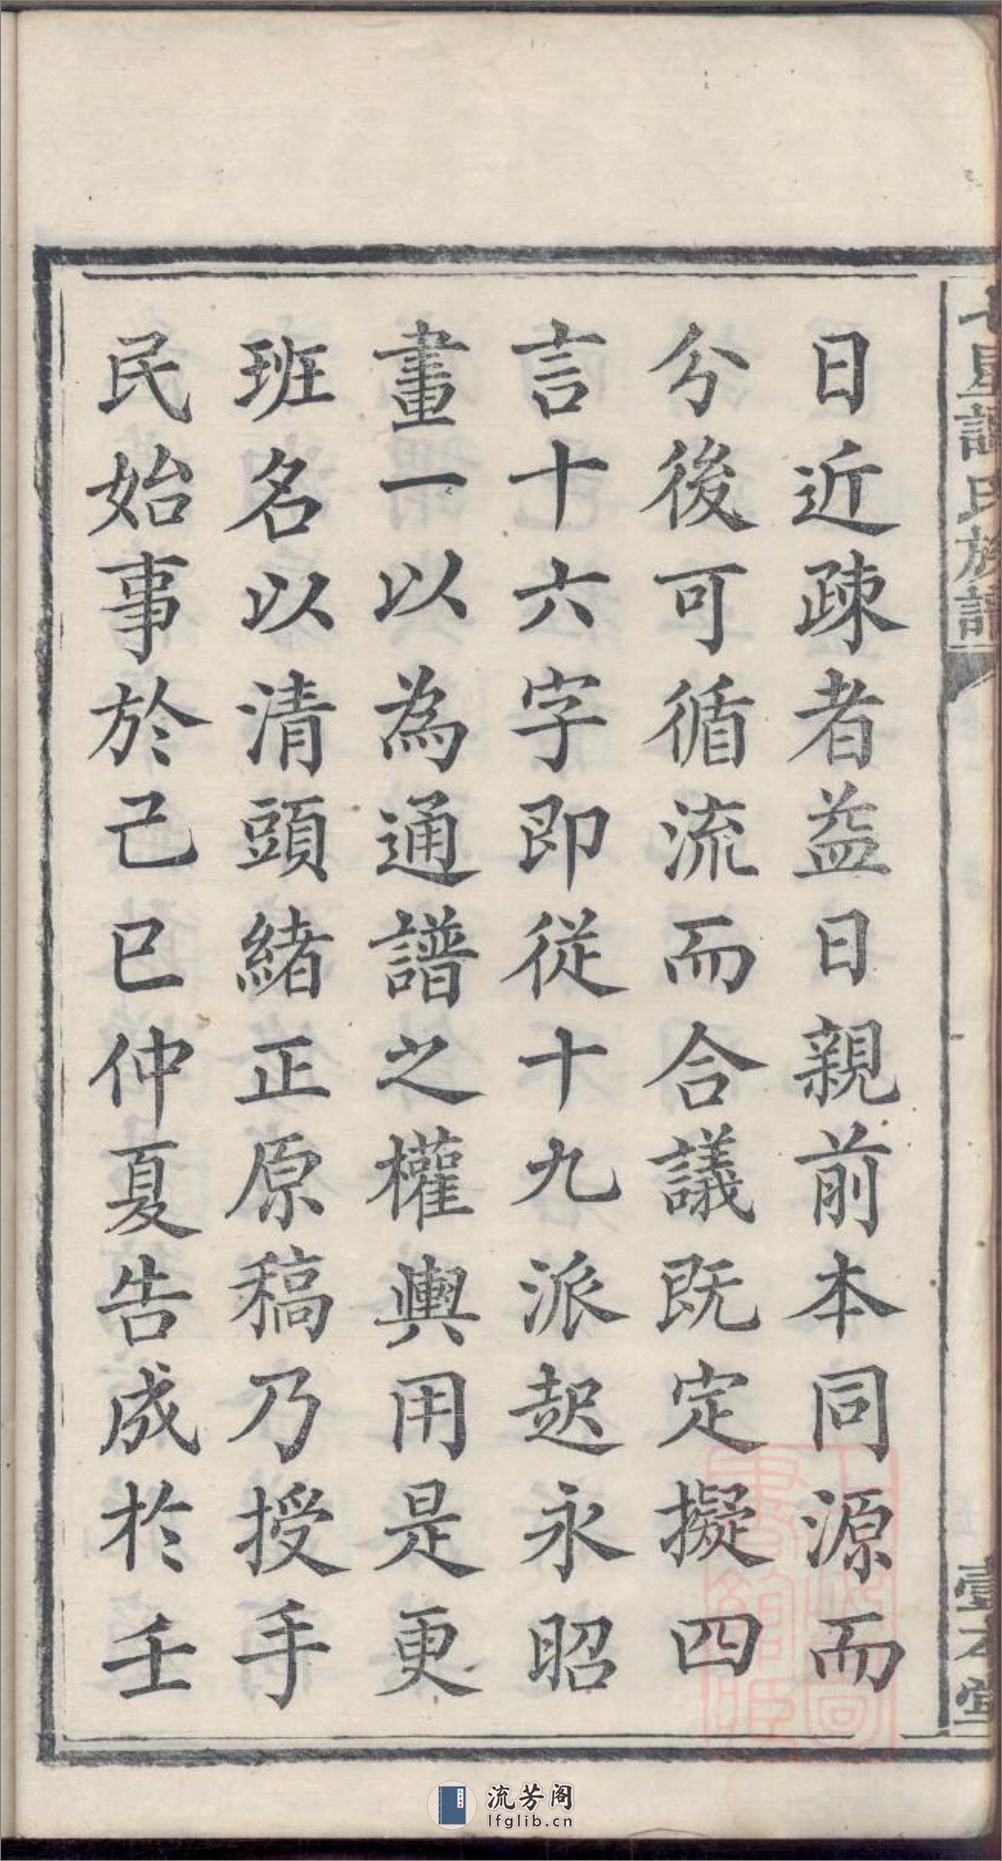 日近疎者益日親前本同源而
分後可循流而合議既定擬四
言十六字即從十九派起永昭
畫一以為通譜之權輿用是更
班名以清頭緒正原稿乃授手
民始事於己巳仲夏告成於壬
氏族譜
流芳阁
lfglib.cn